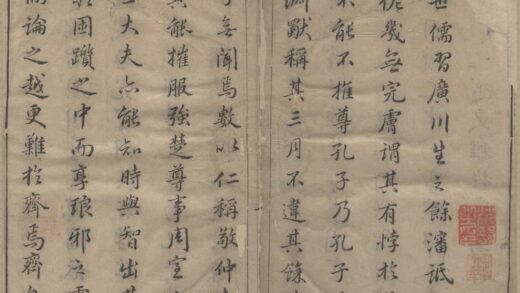 世儒習廣川生之餘瀋詆
仲幾無完膚謂其有悖於
不能不推尊孔子乃孔子
淵稱其三月不違其餘
無聞焉數以仁稱敬仲
其能摧服強楚尊事周室
大夫亦能知時與智出其
困躓之中而享琅邪之
而論之越更難於齊焉齊